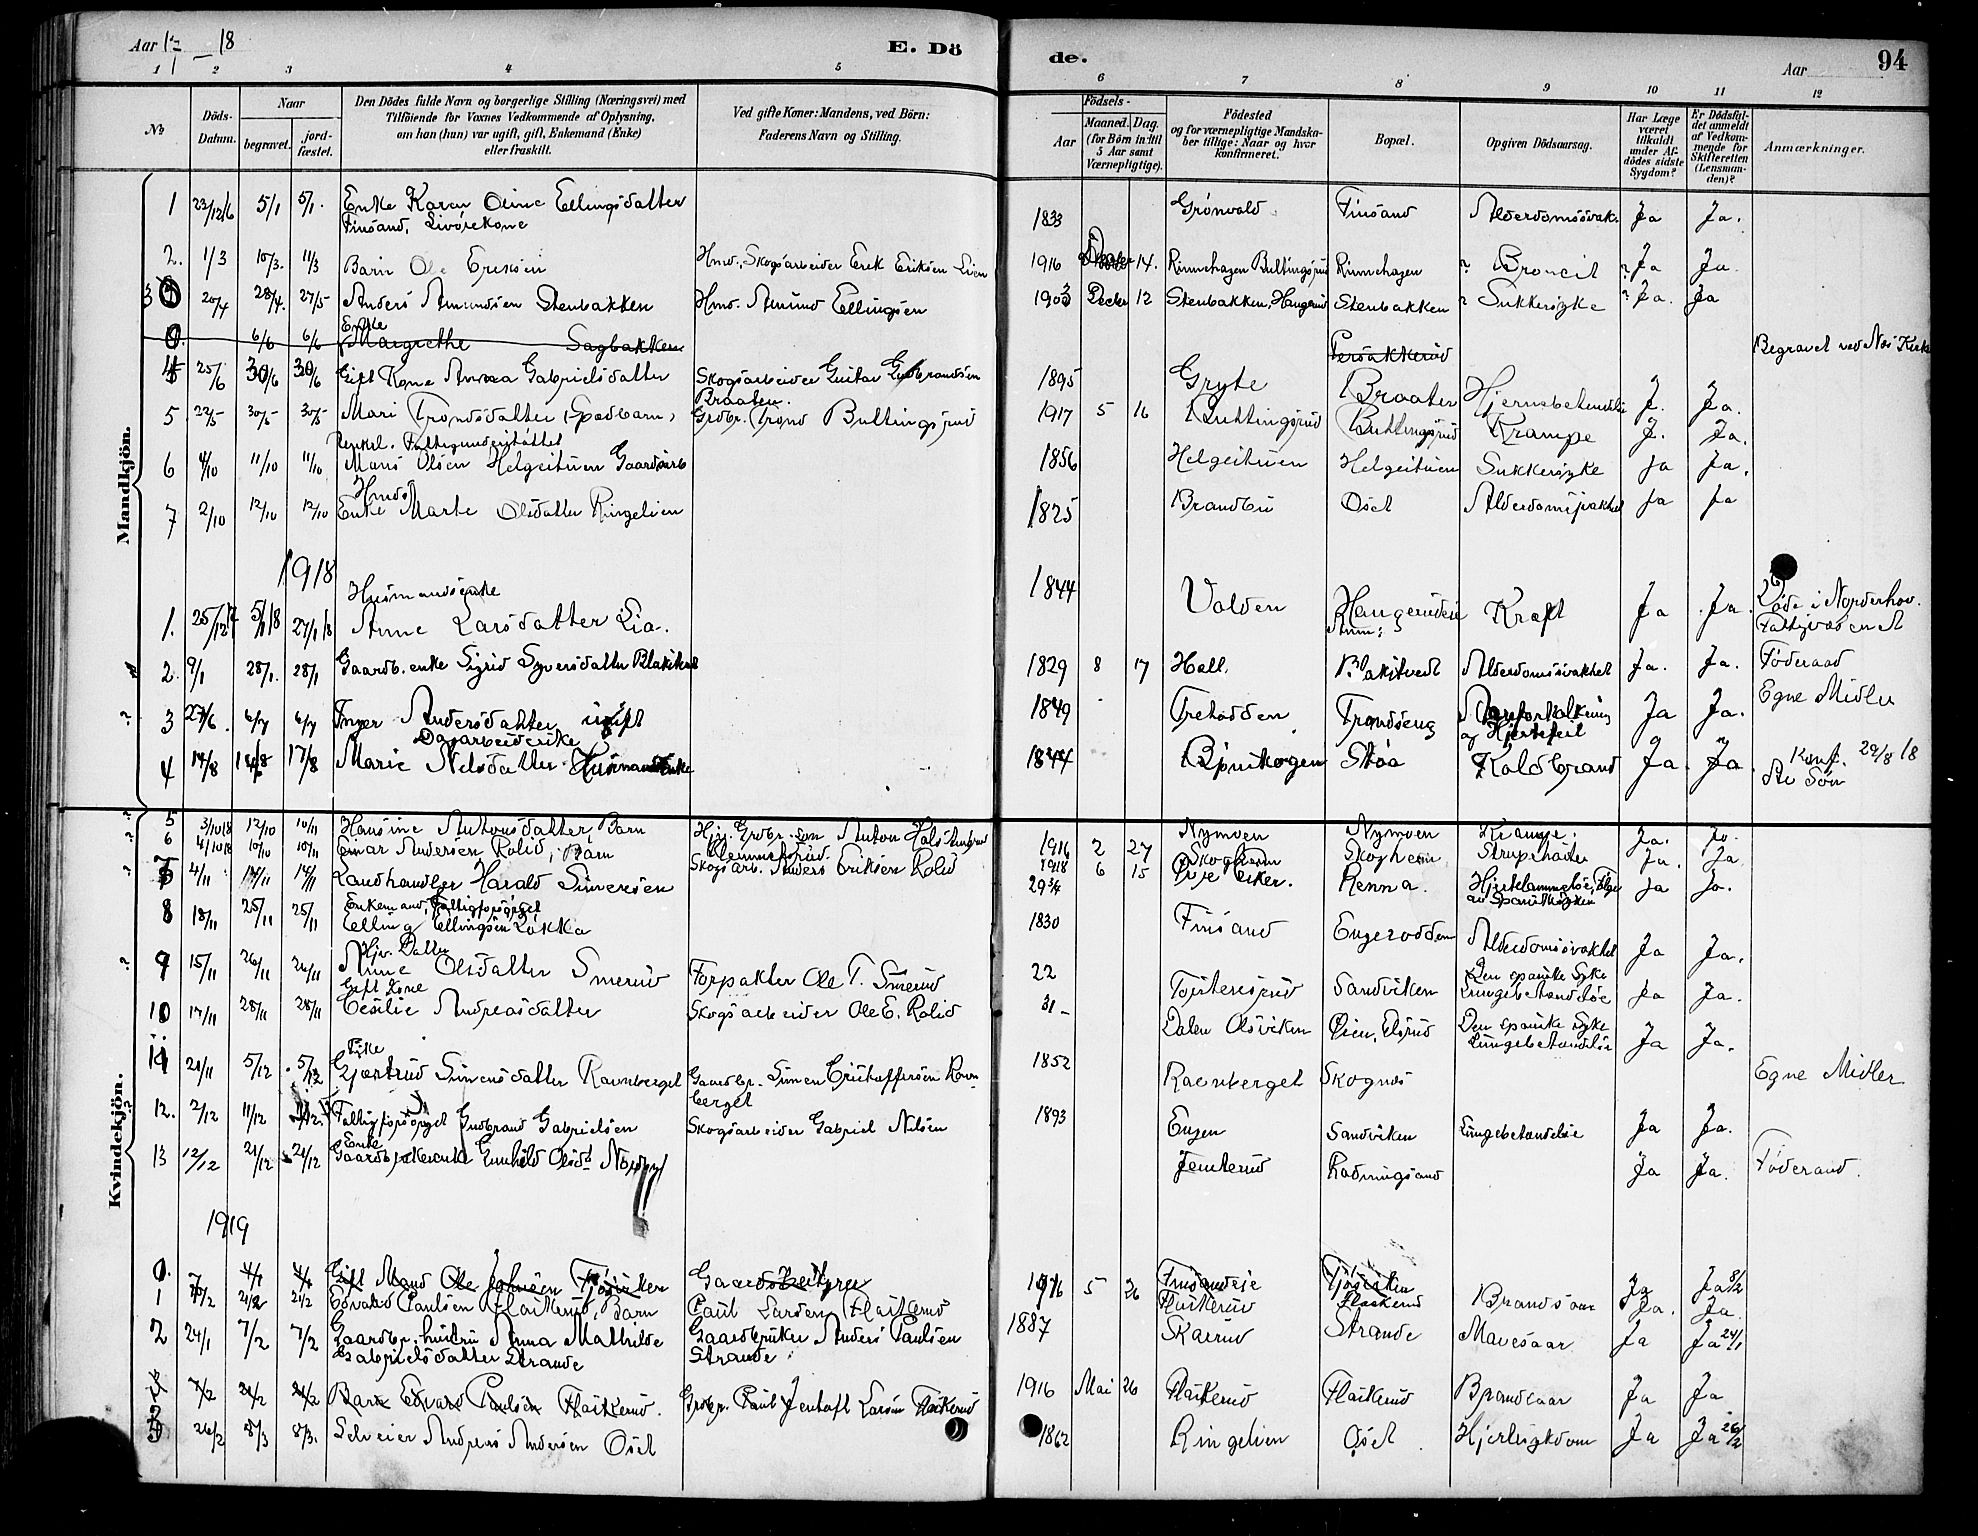 Aar 17 - 18
E. Dö
de.
Aar
94
1 2 3 4 5
6 7 8 9 10 11 12
No
Döds-Datum.
Naar
begravet.
jord-fæstet.
Den Dödes fulde Navn og borgerlige Stilling (Næringsvei) med
Tilföiende for Voxnes Vedkommende af Oplysning,
om han (hun) var ugift, gift, Enkemand (Enke)
eller fraskilt.
Ved gifte Koner: Mandens, ved Börn:
Faderens Navn og Stilling.
Födsels-
Aar
Maaned. Dag.
(for Börn indtil
5 Aar samt
Værnepligtige).
Födested
og for værnepligtige Mandska-
ber tillige: Naar og hvor
konfirmeret.
Bopæl.
Opgiven Dödsaarsag.
Har Læge
været
tilkaldt
under Af-
dödes sidste
Sygdom?
Er Dödsfal-
det anmeldt
af Vedkom-
mende for
Skifteretten
(Lensman-
den)?
Anmærkninger.
Mandkjön.
1 23/12 16 5/1 5/1. Enke Karen Oline Ellingsdatter 1833 Grönvold Finsand Alderdomssvak. Ja Ja.
Finsand, Livörekone
2. 1/3 10/3. 11/3 Barn Ole Eriksen Hmd., Skogsarbeider Erik Eriksen Lien 1916 14. Rinnehagen Bultingsrud Rinnehagen ? Broncit ? Ja Ja.
3 20/4 28/4. 27/5 Anders Amundsen Stenbakken Hmd. Amund Ellingsen 1903 Decbr 12 Stenbakken, Haugerud Stenbakken ? Sukkersyke ? Ja. Ja
Enke
0. 6/6 6/6 Margrethe Sagbakken Persakkerud Begravet ved Nes Kirke
4 25/6 30/6 30/6 Gift Kone Anna Gabrielsdatter Skogsarbeider Gustav Gudbrandsen 1895 Gryte Braaten Hjernebetændelse J. Ja.
Braaten.
5 22/5 30/5 30/5 Mari Trondsdatter (Spædbarn) Grdbr. Trond Bultingsrud 1917 5 16 Buhltingsrud Buhltingsrud Krampe J. Ja.
Fattigunderstöttet
6 4/10 11/10 11/10 Mons Olsen Helgeituen Gaardarb 1856 Helgeituen Helgeituen Sukkersyke Ja Ja.
Hmds
7 2/10 12/10 12/10 Enke Marte Olsdatter Ringelien 1825 Brandbu Oset Alderdomssvakhet Ja Ja
1918
Husmandsenke
1. 25/12 17 5/1 18 27/1 18 Anne Larsdatter Lia. 1844 Valden Haugerudeie Kræft Ja Ja. Döde i Norderhov.
Fattigvæsenet
2. 9/1 28/1. 28/1 Gaardb. enke Sigrid Syversdatter Blakstvedt 1829 8 17 Hall. Blakstvedt Alderdomssvakhet Ja. Ja. Föderaad
Egne Midler
3 27/6. 6/7 6/7 Inger Andersdatter ugift 1849 Tretodden Trondseng Aareforkalkning Ja Ja.
og Hjertefeil
Dagarbeiderske
4 14/8 17/8 Marie Nilsdatter Husmandsenke 1844 Björnskogen Stöa Koldbrand Ja. Ja. Konf. 29/8 18
Ste Sön
5 3/10 18 12/10 10/11 Hansine Antonsdatter, Barn Hjv. Grdbr. sön Anton 1916 2 27 Nymoen Nymoen Krampe. Ja. Ja.
6 4/10 18 10/10 10/11 Einar Andersen Rolid, Barn Skogsarb. Anders Eriksen Rolid 1918 6 15 Skoghem Skoghem Strupehoste Ja. Ja
7 4/11 14/11 14/11 Landhandler Harald Simensen 29 3/4 Renna. Hjertelammelse, Fölge Ja Ja.
av Spansksyken
Kvindekjön.
Enkemand, Fattigforsörget
8 18/11 25/11 25/11 Elling Ellingsen Lökka 1830 Finsand Engerodden Alderdomssvakhet Ja Ja.
Hjv. Datter
9 15/11 26/11 26/11 Anne Olsdatter Smerud Forpakter Ole T. Smerud 22 Sandviken Den spanske Syke Ja Ja.
Lungebetændelse
Gift Kone
10 17/11 28/11 28/11 Cecilie Andreasdatter Skogsarbeider Ole E. Rolid 31 Dalen Olsviken Den spanske Syke Ja Ja.
Lungebetændelse
Pike
11 21/11 5/12 5/12 Gjertrud Simensdatter Ravnberget Gaardbr. Simen Cristoffersen Ravn- 1852 Ravnberget Skognes Egne Midler
berget
12. 2/12 11/12 11/12 Fattigforsörget Gudbrand Gabrielsen Skogsarbeider Gabriel Nilsen 1893 Engen Sandviken Lungebetændelse Ja Ja.
Enke
13 12/12 21/12 21/12 Gunhild Olsd. Jemterud Ja Ja. Föderaad.
1919
0. 4/1 4/1 Gift Mand Ole Johnsen Tjösviken Gaardbruker Finsandeie Tjösviken Ja Ja
1 7/2 21/2 21/2 Edvard Paulsen Flaskerud, Barn Paul Larsen Flaskerud 1916 5 26 Flaskerud Flaskerud Brandsaar Ja. Ja.
2 24/1 7/2 7/2 Gaardbr. hustru Anna Mathilde Gaardbruker Anders Paulsen 1887 Skarrud Strande Mavesaar Ja Ja 24/1
Gabrielsdatter Strande Strande
7/2 21/2 21/2 Barn Edvard Paulsen Flaskerud. Grdbr. Paul Jenhaft Larsen Flaskerud 1916 Mai 26 Flaskerud Flaskerud Brandsaar Ja Ja
3 26/2 8/3 8/3. Selveier Andreas Andersen Oset 1862 Ringelien Oset Hjertesykdom Ja Ja 26/2